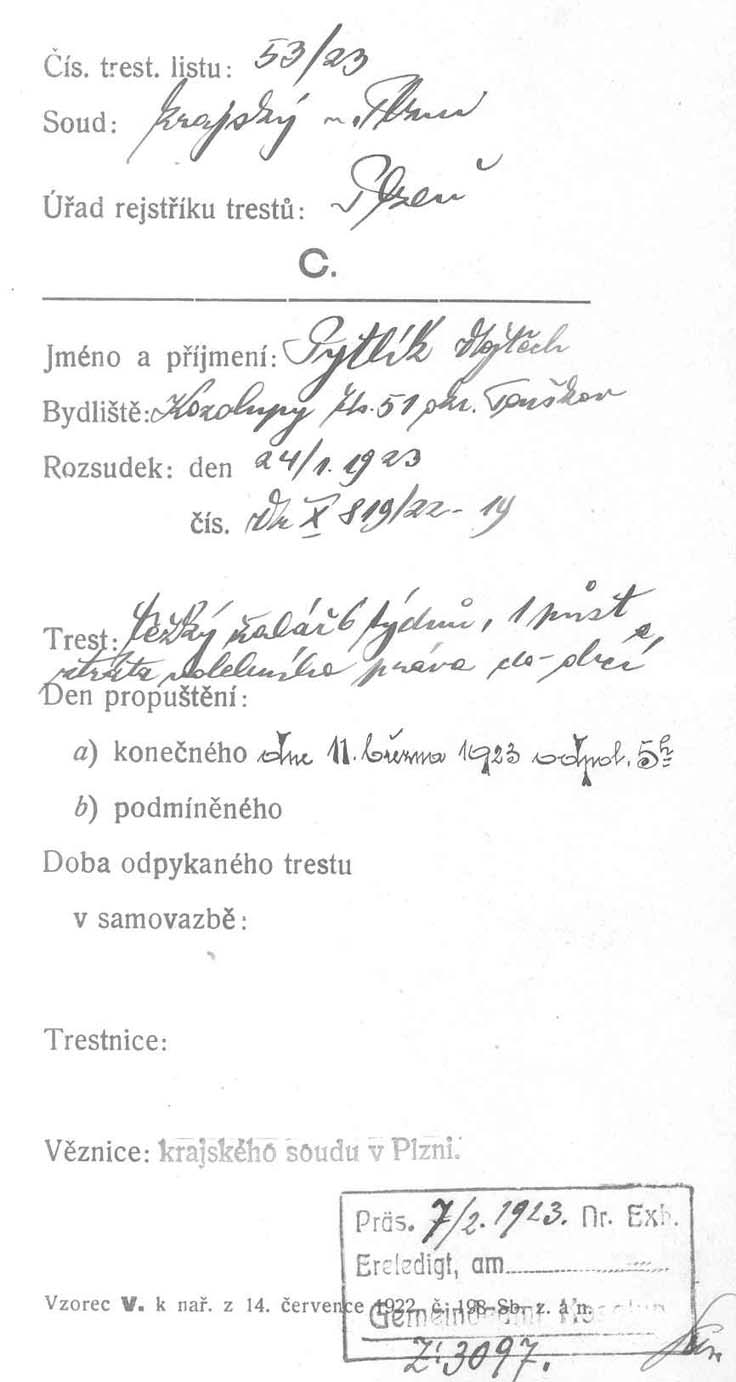 Čís. trest. listu: 53/23
Soud: krajský v Plzni
Úřad rejstříku trestů: Plzeň
C.
Jméno a příjmení: Pytlík Vojtěch
Bydliště: Kozolupy čís. 51 okr. Touškov
Rozsudek: den 24/1. 1923
čís. Vr X 819/22-19
Trest: těžký žalář 6 týdnů, 1 půst a
ztráta volebního práva do obcí
Den propuštění:
a) konečného dne 11. března 1923 odpol. 5h
b) podmíněného
Doba odpykaného trestu
v samovazbě:
Trestnice:
Věznice: krajského soudu v Plzni.
Präs. 7/2. 1923. Nr. Exh.
Erledigt, am
Vzorec V. k nař. z 14. července 1922, č. 198 Sb. z. a n.
Gemeindeamt
Z: 3097.